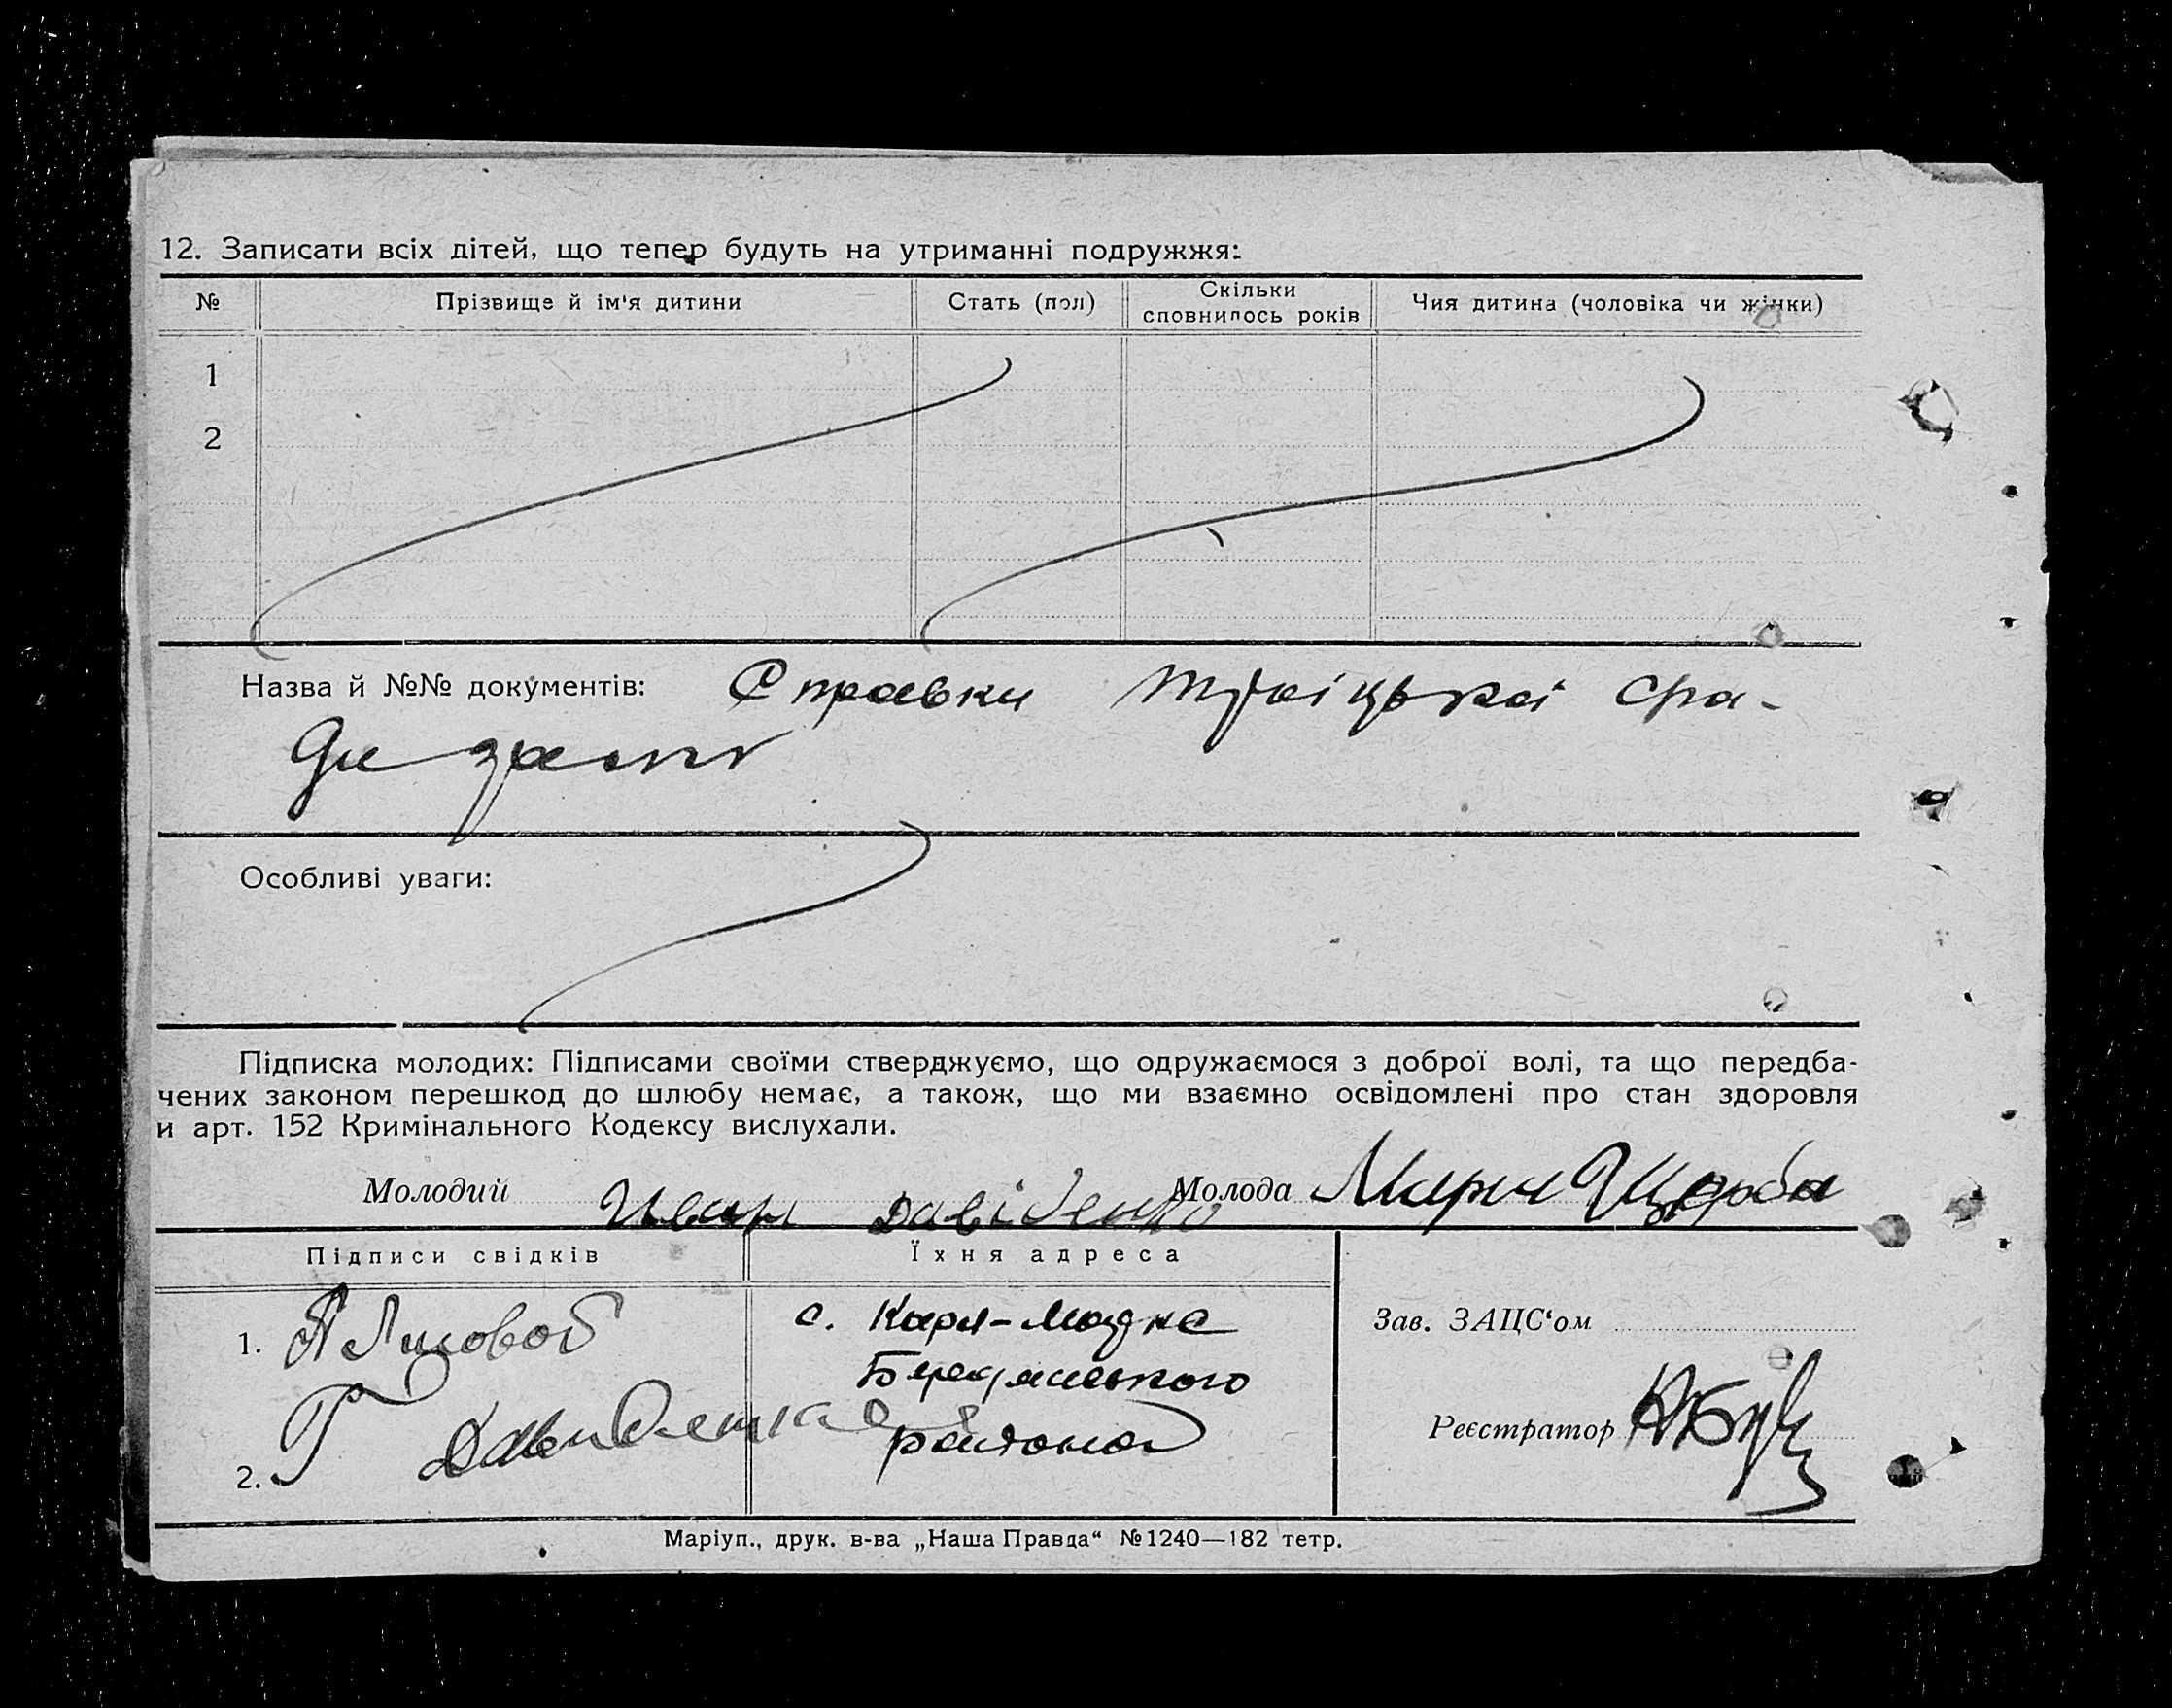 12. Записати всіх дітей, що тепер будуть на утриманні подружжя:
№ Прізвище й ім'я дитини Стать (пол) Скільки сповнилось років Чия дитина (чоловіка чи жінки)
1
2
Назва й №№ документів: Справки Троїцької сра-
ди
Особливі уваги:
Підписка молодих: Підписами своїми стверджуємо, що одружаємося з доброї волі, та що передба-
чених законом перешкод до шлюбу немає, а також, що ми взаємно освідомлені про стан здоровля
и арт. 152 Кримінального Кодексу вислухали.
Молодий Иван Давіденко Молода Мария Щерба
Підписи свідків Їхня адреса
1. с. Карл-Маркс
Бердянського
2. Г Давиденка района
Зав. ЗАЦС'ом
Реєстратор
Маріуп., друк. в-ва „Наша Правда“ №1240—182 тетр.